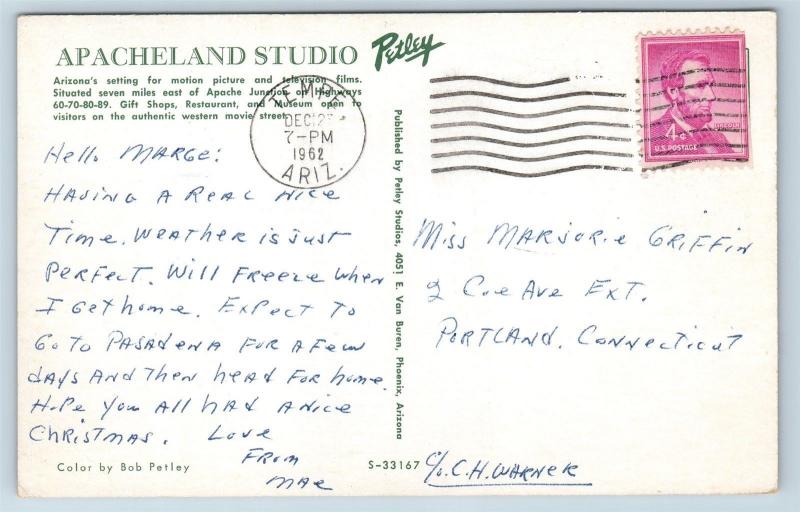 APACHELAND STUDIO
Petley
Arizona's setting for motion picture and television films.
Situated seven miles east of Apache Junction on Highways
60-70-80-89. Gift Shops, Restaurant, and Museum open to
visitors on the authentic western movie street.
TEMPE
DEC 27
7-PM
1962
ARIZ.
LINCOLN
4¢
U.S. POSTAGE
Hello MARGE:
HAVING A REAL NICE
TIME. WEATHER is JUST
PERFECT. Will FREEZE WHEN
I GET HOME. EXPECT TO
GO TO PASADENA FOR A FEW
DAYS AND THEN HEAD FOR HOME.
HOPE YOU ALL HAD A NICE
CHRISTMAS. LOVE
FROM
MAE
Color by Bob Petley
Published by Petley Studios, 4051 E. Van Buren, Phoenix, Arizona
S-33167
MISS MARJORIE GRIFFIN
2 COE AVE EXT.
PORTLAND, CONNECTICUT
c/o. C.H. WARNER